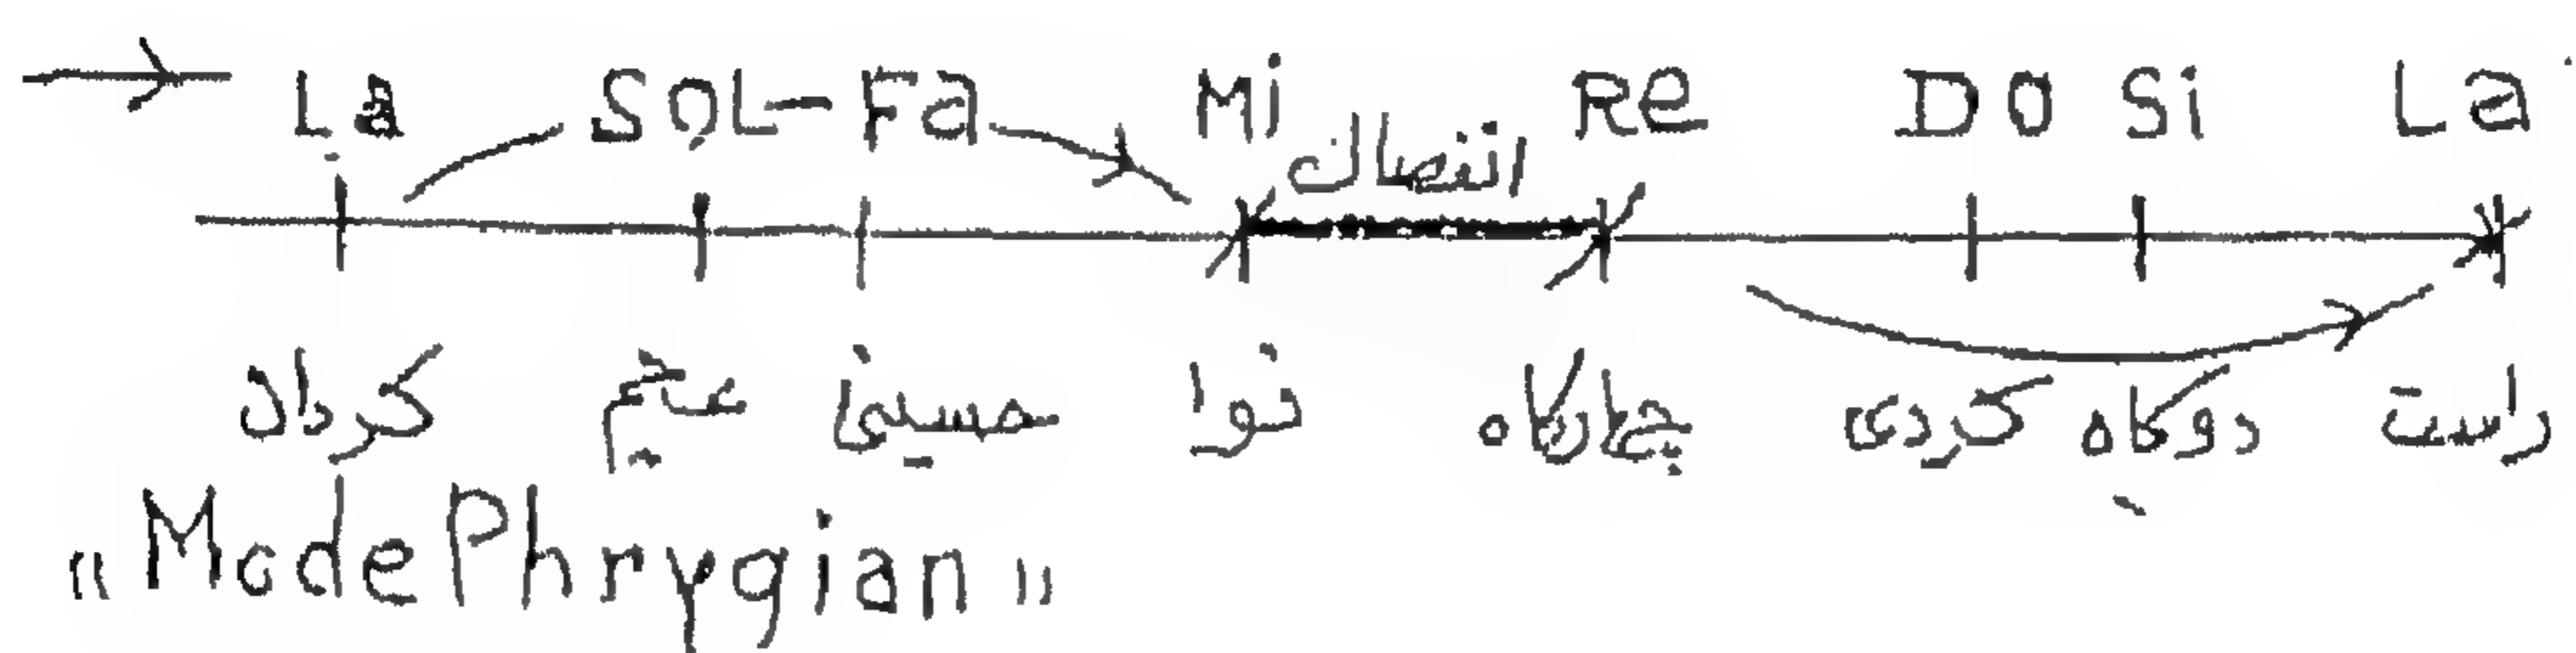 La SOL-Fa Mi Re DO Si La
انفصال
كردان عجم حسيني نوا چهارگاه كردى دوگاه راست
"Mode Phrygian"